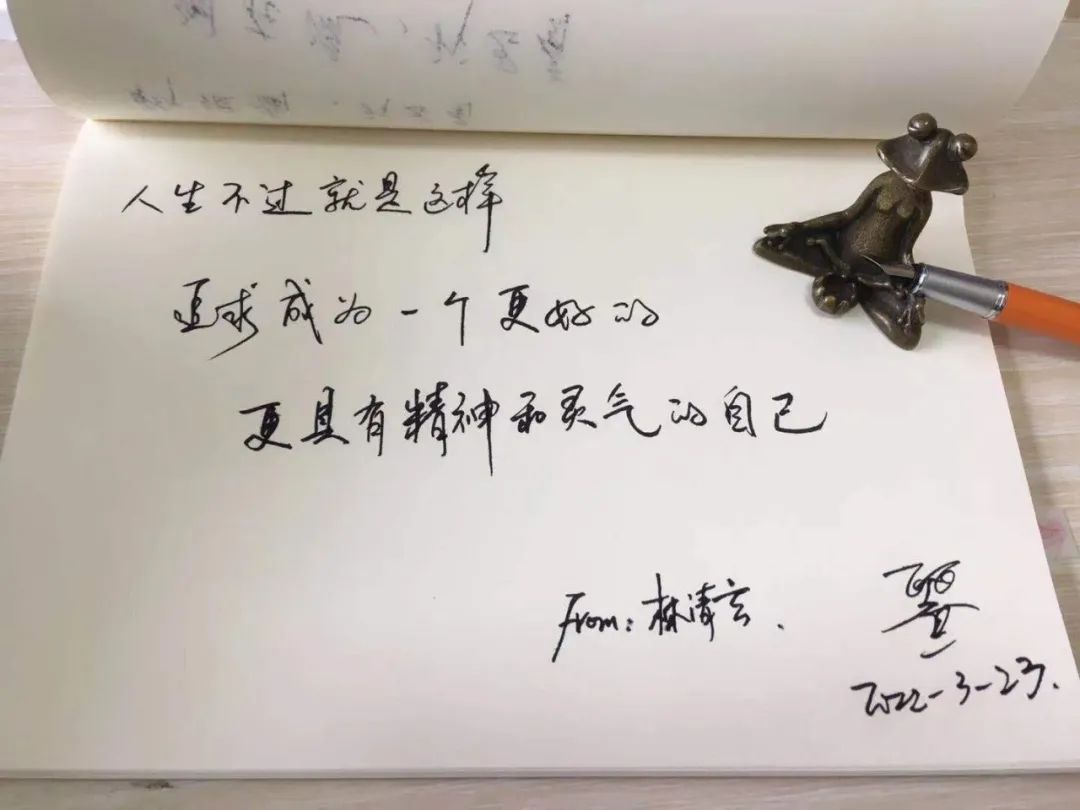 人生不过就是这样
追求成为一个更好的
更具有精神和灵气的自己
From: 林清玄.
2022-3-23.